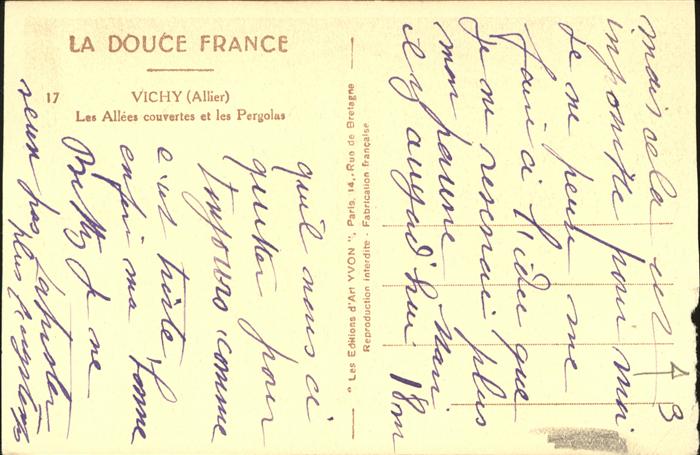 LA DOUCE FRANCE
17 VICHY (Allier)
Les Allées couvertes et les Pergolas
" Les Editions d'Art YVON ", Paris, 14, Rue de Bretagne
Reproduction interdite - Fabrication française
mais cela est
pour moi
je ne peux me
faire à l'idée que
je ne reverrai plus
mon pauvre Mari
il y aujourd'hui 18 m
qu'il nous a
quitter pour
toujours comme
c'est triste
enfin ma bonne
je ne
veux pas
plus longtemps
A
3